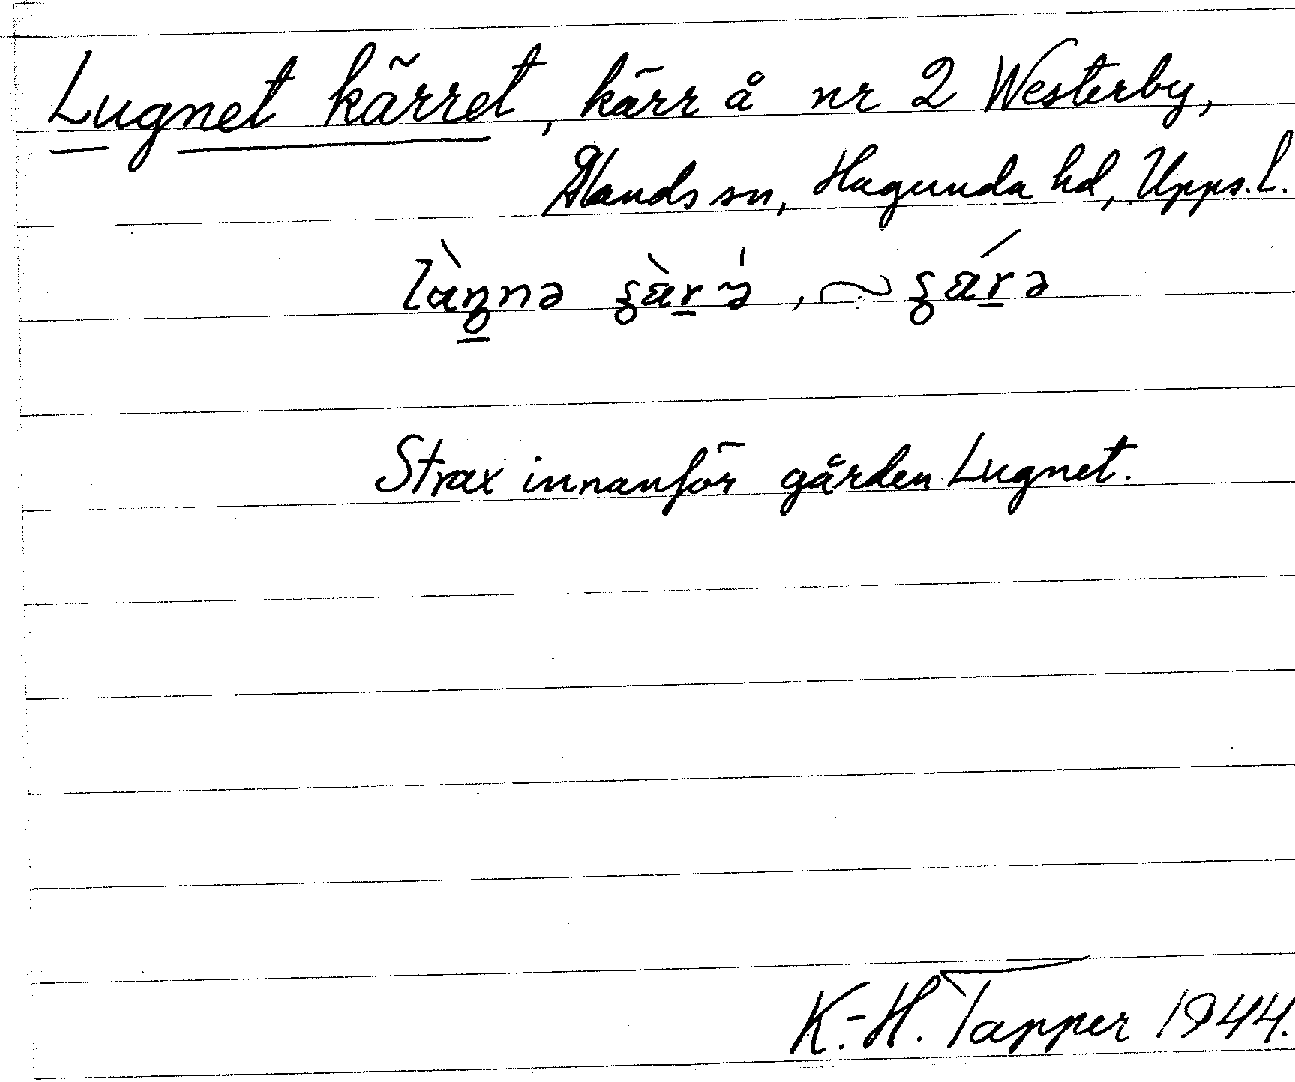 Lugnet kärret, kärr å nr 2 Westerby,
Ålands sn, Hagunda hd, Upps. l.
Strax innanför gården Lugnet.
K.-H. Tapper 1944.